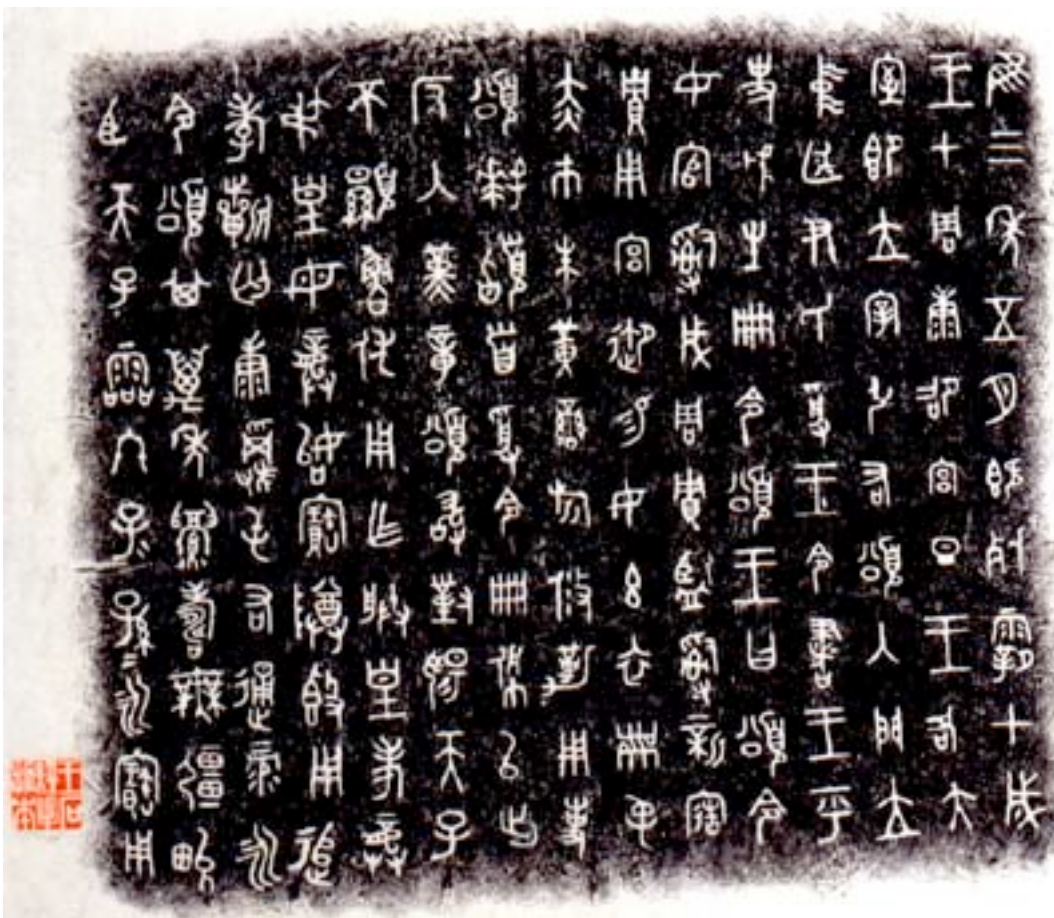 隹三年五月既死霸甲戌
王才周康卲宮旦王各大
室即立宰弘右頌入門立
中廷尹氏受王令書王乎
史虢生冊令頌王曰頌令
女官𤔲成周貯監𤔲新造
貯用宮御易女玄衣黹屯
赤巿朱黃䜌旂攸勒用事
頌拜𩒨首受令冊佩以出
反入堇章頌敢對揚天子
不顯魯休用乍朕皇考龏
弔皇母龏始寶尊𣪘用追
孝𣄨匄康𩁹屯右通彔永
令頌其萬年眉壽無疆畯
臣天子霝冬子子孫孫永寶用